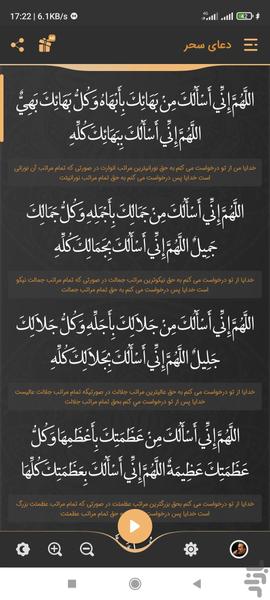 17:22 | 6.1KB/s
دعای سحر
اللَّهُمَّ إِنِّي أَسْأَلُكَ مِنْ بَهَائِكَ بِأَبْهَاهُ وَكُلُّ بَهَائِكَ بَهِيٌّ
اللَّهُمَّ إِنِّي أَسْأَلُكَ بِبَهَائِكَ كُلِّهِ
خدایا من از تو درخواست می کنم به حق نورانیترین مراتب انوارت در صورتی که تمام مراتب آن نورانی
است خدایا پس درخواست می کنم به حق تمام مراتب نورانیتت
اللَّهُمَّ إِنِّي أَسْأَلُكَ مِنْ جَمَالِكَ بِأَجْمَلِهِ وَكُلُّ جَمَالِكَ
جَمِيلٌ اللَّهُمَّ إِنِّي أَسْأَلُكَ بِجَمَالِكَ كُلِّهِ
خدایا از تو درخواست می کنم به حق نیکوترین مراتب جمالت در صورتی که تمام مراتب جمالت نیکو
است خدایا پس درخواست می کنم به حق تمام مراتب جمالت
اللَّهُمَّ إِنِّي أَسْأَلُكَ مِنْ جَلاَلِكَ بِأَجَلِّهِ وَكُلُّ جَلاَلِكَ
جَلِيلٌ اللَّهُمَّ إِنِّي أَسْأَلُكَ بِجَلاَلِكَ كُلِّهِ
خدایا از تو درخواست می کنم به حق عالیترین مراتب جلالت در صورتیکه تمام مراتب جلالت عالیست
خدایا پس از تو درخواست می کنم بحق تمام مراتب جلالت
اللَّهُمَّ إِنِّي أَسْأَلُكَ مِنْ عَظَمَتِكَ بِأَعْظَمِهَا وَكُلُّ
عَظَمَتِكَ عَظِيمَةٌ اللَّهُمَّ إِنِّي أَسْأَلُكَ بِعَظَمَتِكَ كُلِّهَا
خدایا از تو درخواست می کنم بحق بزرگترین مراتب عظمتت در صورتی که تمام مراتب عظمتت بزرگ
است خدایا پس درخواست می کنم به حق تمام مراتب عظمتت
بازار